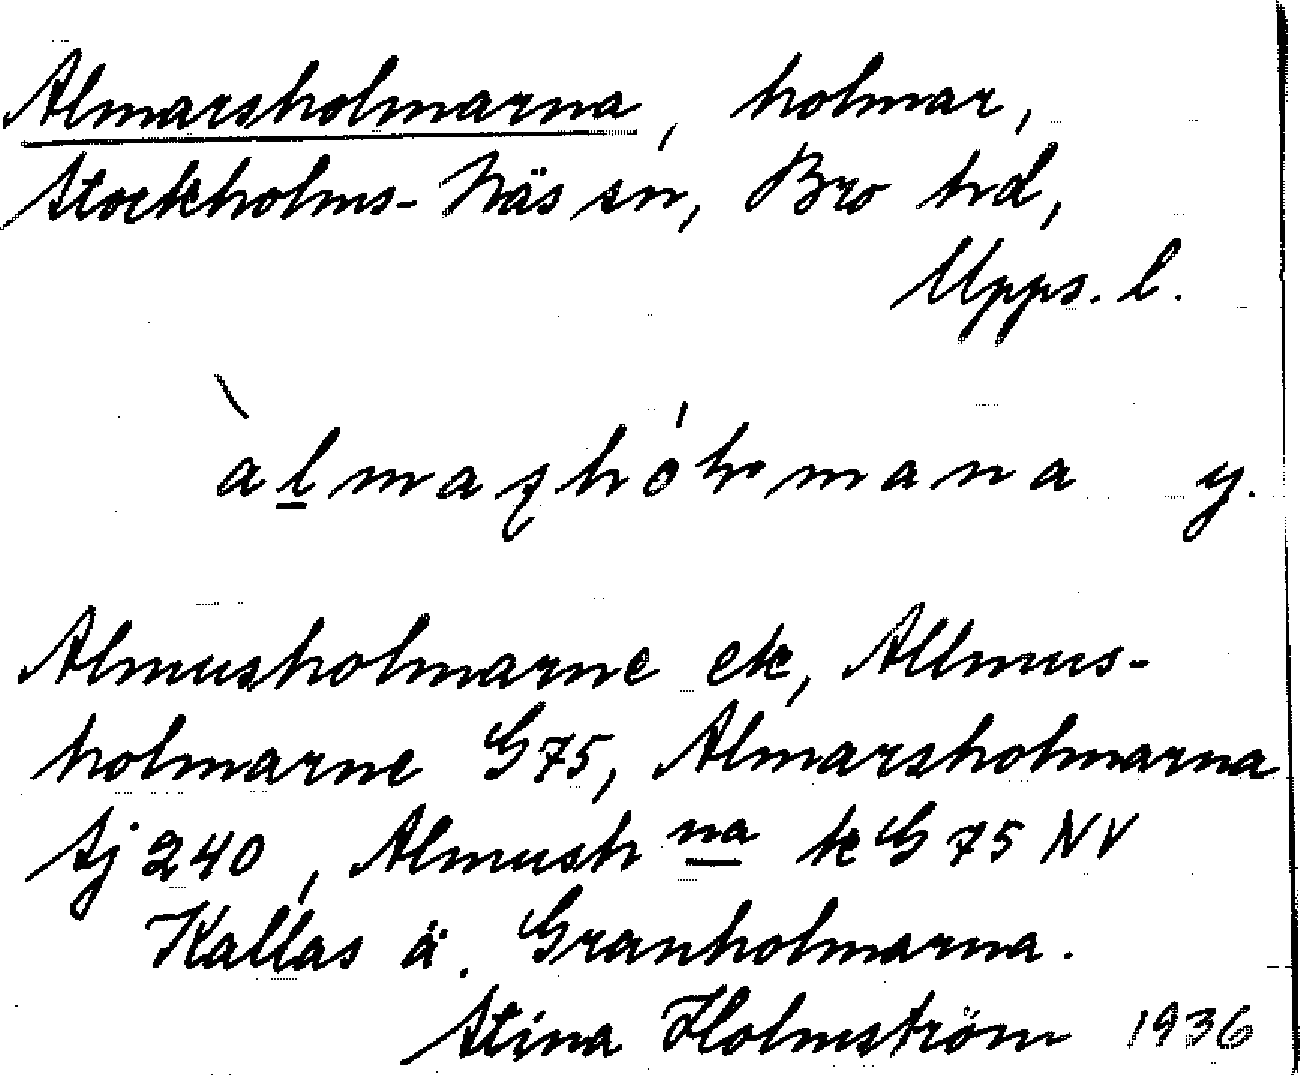 Almarsholmarna, holmar,
Stockholms-Näs sn, Bro hd,
Upps. l.
àlmaʂhó̜lmana y.
Almusholmarne ek, Allmus-
holmarne G75, Almarsholmarna
Sj 240, Almush na k G 75 NV
Kallas ä. Granholmarna.
Stina Holmström 1936